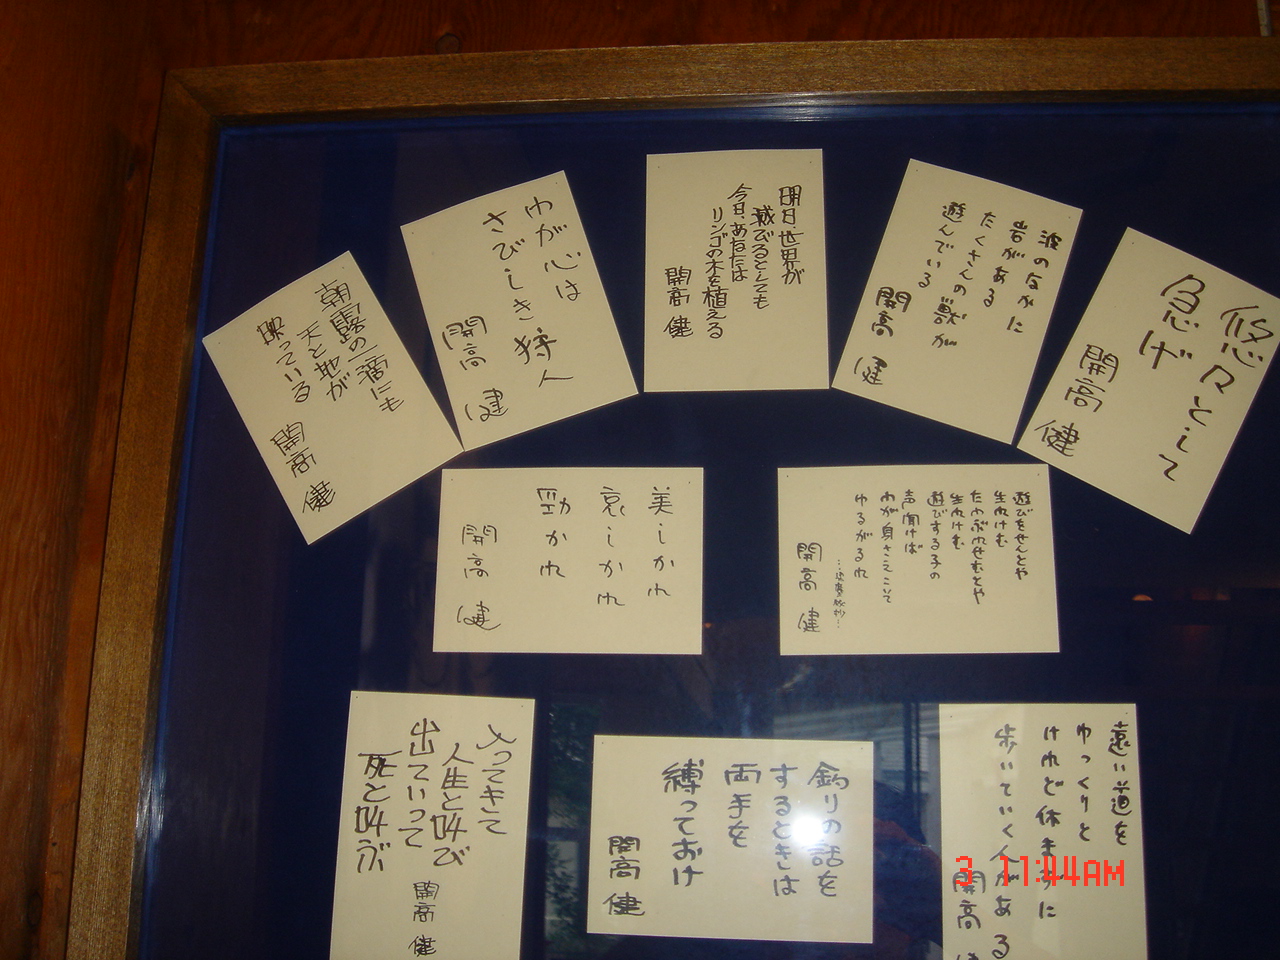 朝露の一滴にも
天と地が
映っている
開高
健
わが心は
さびしき狩人
開高
健
明日、世界が
滅びるとしても
今日、あなたは
リンゴの木を植える
開高
健
波のなかに
岩がある
たくさんの獣が
遊んでいる
開高
健
悠々として
急げ
開高
健
美しかれ
哀しかれ
勁かれ
開高
健
遊びをせんとや
生れけむ
たわぶれせむとや
生れけむ
遊びする子の
声聞けば
わが身さえこそ
ゆるがるれ
開高
健
入ってきて
人生と叫び
出ていって
死と叫ぶ
開高
健
釣りの話を
するときは
両手を
縛っておけ
開高
健
遠い道を
ゆっくりと
けれど休まずに
歩いていく人がある
開高
健
3 11:44AM